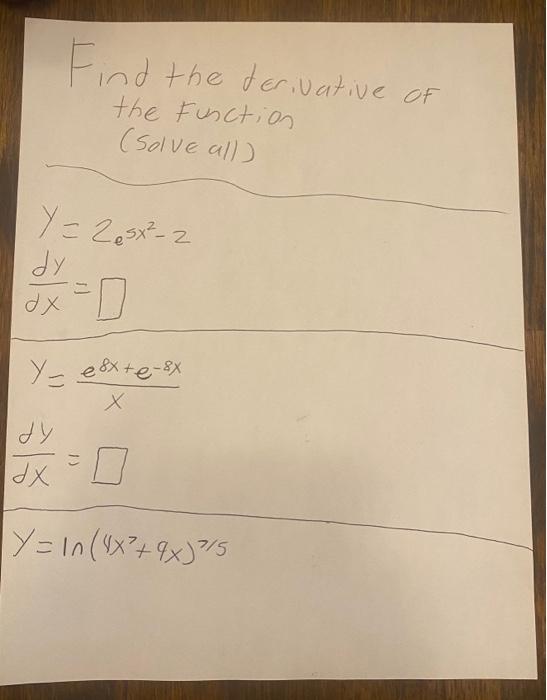 Find the derivative of
the Function
(Solve all)
y = 2e^5x²-2
dy/dx = □
y = e^8x + e^-8x / x
dy/dx = □
y = ln(4x⁷ + 9x)^7/5